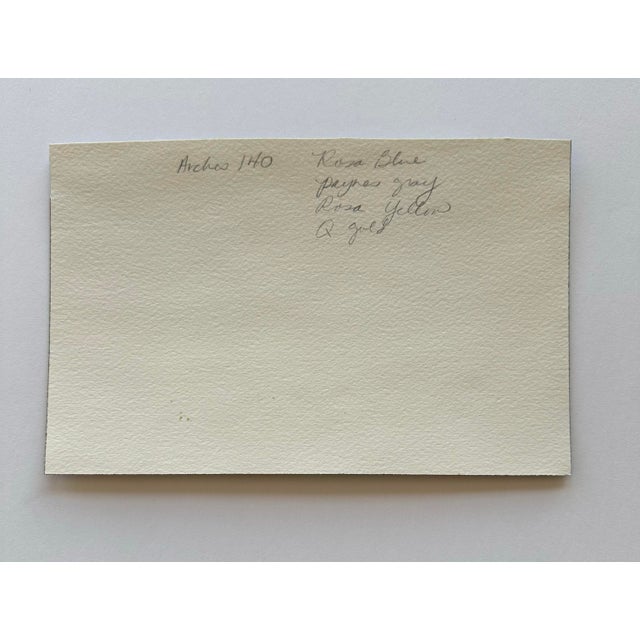 Arches 140
Rosa Blue
paynes gray
Rosa Yellow
Q gold